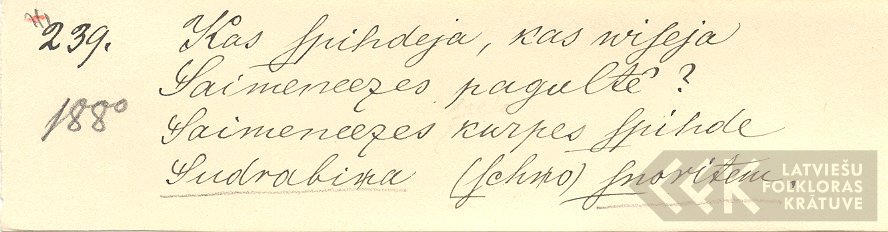 239. Kas spihdeja, kas wiseja
Saimeneezes pagultê?
1880
Saimeneezes kurpes spihde
Sudrabiņa (schņo) snoritem,
LATVIEŠU
FOLKLORAS
KRĀTUVE